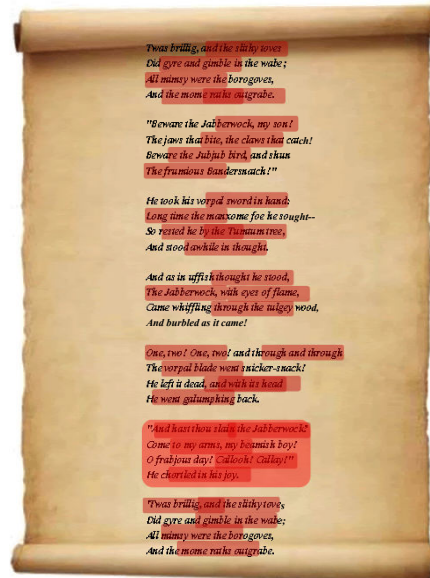 Twas brillig, and the slithy toves
Did gyre and gimble in the wabe;
All mimsy were the borogoves,
And the mome raths outgrabe.
"Beware the Jabberwock, my son!
The jaws that bite, the claws that catch!
Beware the Jubjub bird, and shun
The frumious Bandersnatch!"
He took his vorpal sword in hand:
Long time the manxome foe he sought--
So rested he by the Tumtum tree,
And stood awhile in thought.
And as in uffish thought he stood,
The Jabberwock, with eyes of flame,
Came whiffling through the tulgey wood,
And burbled as it came!
One, two! One, two! and through and through
The vorpal blade went snicker-snack!
He left it dead, and with its head
He went galumphing back.
"And hast thou slain the Jabberwock?
Come to my arms, my beamish boy!
O frabjous day! Callooh! Callay!"
He chortled in his joy.
'Twas brillig, and the slithy toves
Did gyre and gimble in the wabe;
All mimsy were the borogoves,
And the mome raths outgrabe.